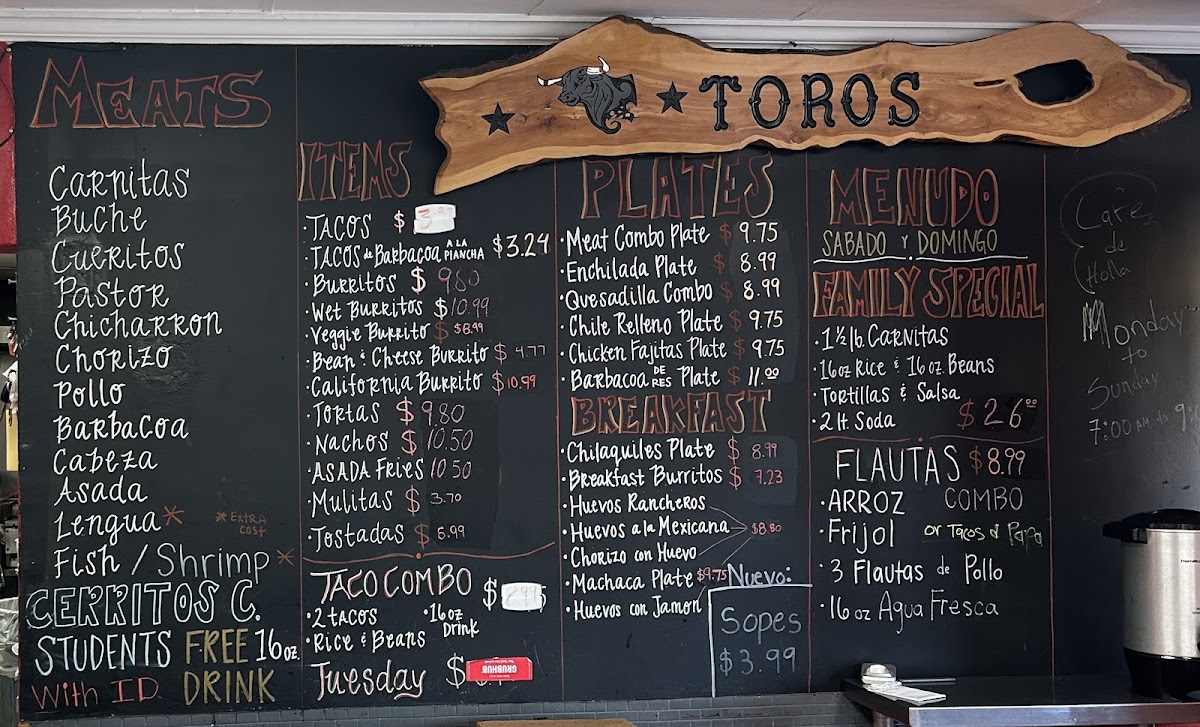 TOROS
MEATS
Carnitas
Buche
Cueritos
Pastor
Chicharron
Chorizo
Pollo
Barbacoa
Cabeza
Asada
Lengua*
*EXTRA COST
Fish / Shrimp *
CERRITOS C.
STUDENTS FREE 16oz.
With I.D. DRINK
ITEMS
·TACOS $
·TACOS de Barbacoa A LA PLANCHA $3.24
·Burritos $ 9.80
·Wet Burritos $10.99
·Veggie Burrito $ $8.99
·Bean & Cheese Burrito $ 4.77
·California Burrito $10.99
·Tortas $ 9.80
·Nachos $ 10.50
·ASADA Fries 10.50
·Mulitas $ 3.70
·Tostadas $ 6.99
TACO COMBO $ 8.99
·2 tacos ·16oz Drink
·Rice & Beans
Tuesday $
GRUBHUB
PLATES
·Meat Combo Plate $ 9.75
·Enchilada Plate $ 8.99
·Quesadilla Combo $ 8.99
·Chile Relleno Plate $ 9.75
·Chicken Fajitas Plate $ 9.75
·Barbacoa DE RES Plate $ 11.00
BREAKFAST
·Chilaquiles Plate $ 8.99
·Breakfast Burritos $ 7.23
·Huevos Rancheros
·Huevos a la Mexicana $8.80
·Chorizo con Huevo
·Machaca Plate $9.75
·Huevos con Jamon
Nuevo:
Sopes
$3.99
MENUDO
SABADO Y DOMINGO
FAMILY SPECIAL
·1 ½ lb. Carnitas
·16oz Rice & 16oz. Beans
·Tortillas & Salsa
·2 lt. Soda $26.00
FLAUTAS $8.99
·ARROZ COMBO
·Frijol or Tacos d Papa
·3 Flautas de Pollo
·16oz Agua Fresca
Cafe
de
Holla
Monday
to
Sunday
7:00 AM to